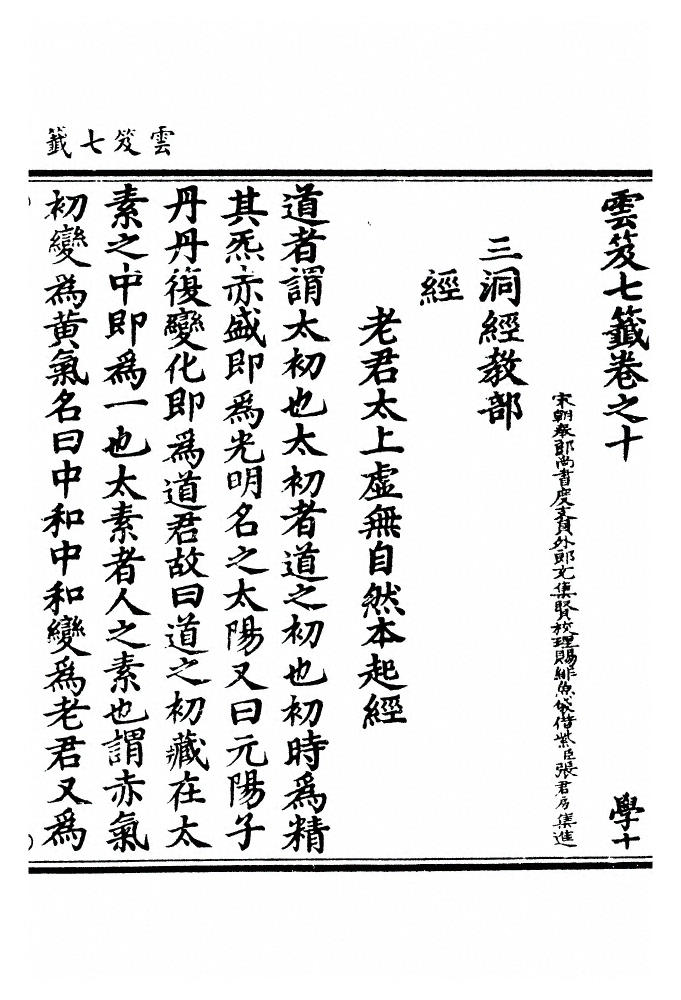 雲笈七籤
雲笈七籤卷之十 學十
宋朝奉郎尚書度支員外郎充集賢校理賜緋魚袋借紫臣張君房集進
三洞經教部
經
老君太上虛無自然本起經
道者謂太初也太初者道之初也初時為精
其炁赤盛即為光明名之太陽又曰元陽子
丹丹復變化即為道君故曰道之初藏在太
素之中即為一也太素者人之素也謂赤氣
初變為黄氣名曰中和中和變為老君又為